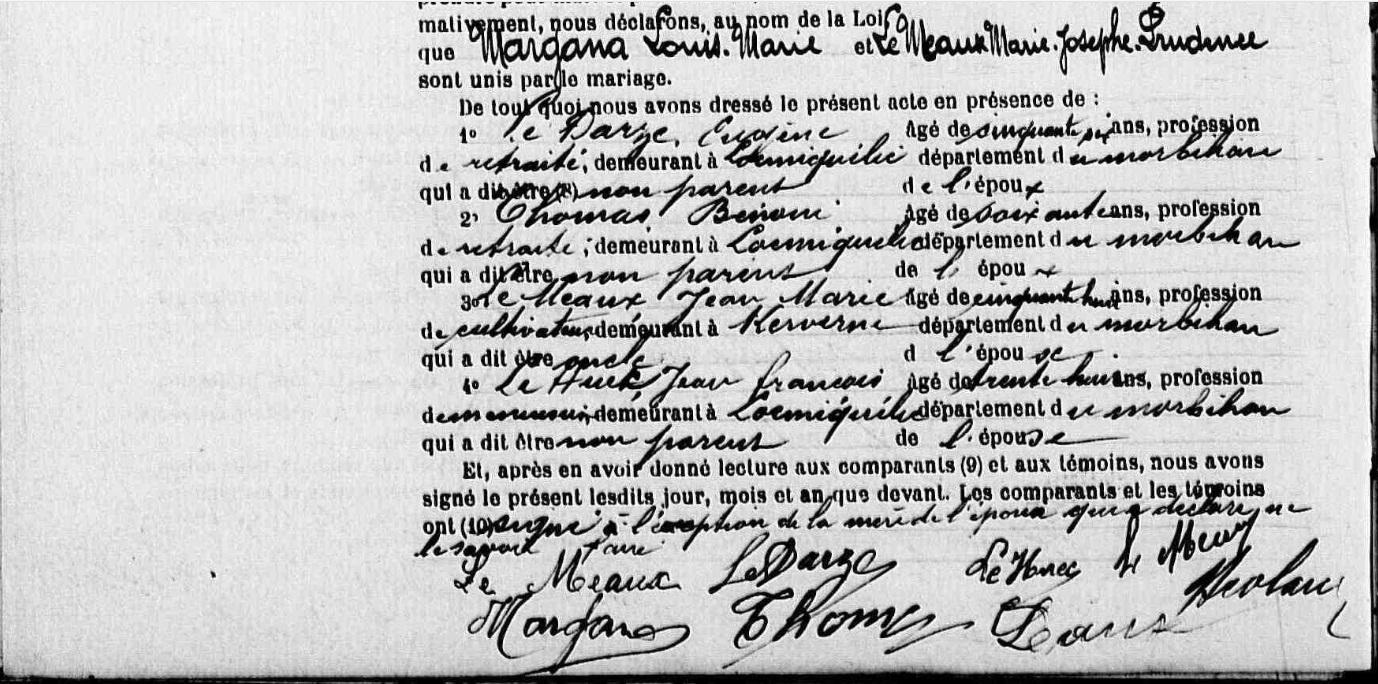 mativement, nous déclarons, au nom de la Loi,
que Margana Louis. Marie et Le Meaux Marie. Josephe. Prudence
sont unis par le mariage.
De tout quoi nous avons dressé le présent acte en présence de :
1º Le Darze, Eugène Agé de sinquante six ans, profession
de retraité, demeurant à Locmiquélic département du morbihan
qui a dit être (8) non parent de l'époux
2º Thomas Benoni Agé de soixante ans, profession
de retraité, demeurant à Locmiquélic département du morbihan
qui a dit être non parent de l'époux
3º Le Meaux Jean Marie Agé de cinquante huit ans, profession
de cultivateur, demeurant à Kerverne département du morbihan
qui a dit être oncle d l'épouse.
4º Le Jean francois Agé de trente huit ans, profession
de menuisier, demeurant à Locmiquélic département du morbihan
qui a dit être non parent de l'épouse
Et, après en avoir donné lecture aux comparants (9) et aux témoins, nous avons
signé le présent lesdits jour, mois et an que devant. Les comparants et les témoins
ont (10) signé à l'exception de la mère de l'époux qui a déclaré ne
le savoir faire
Le Meaux Le Darze
Margana Thomas